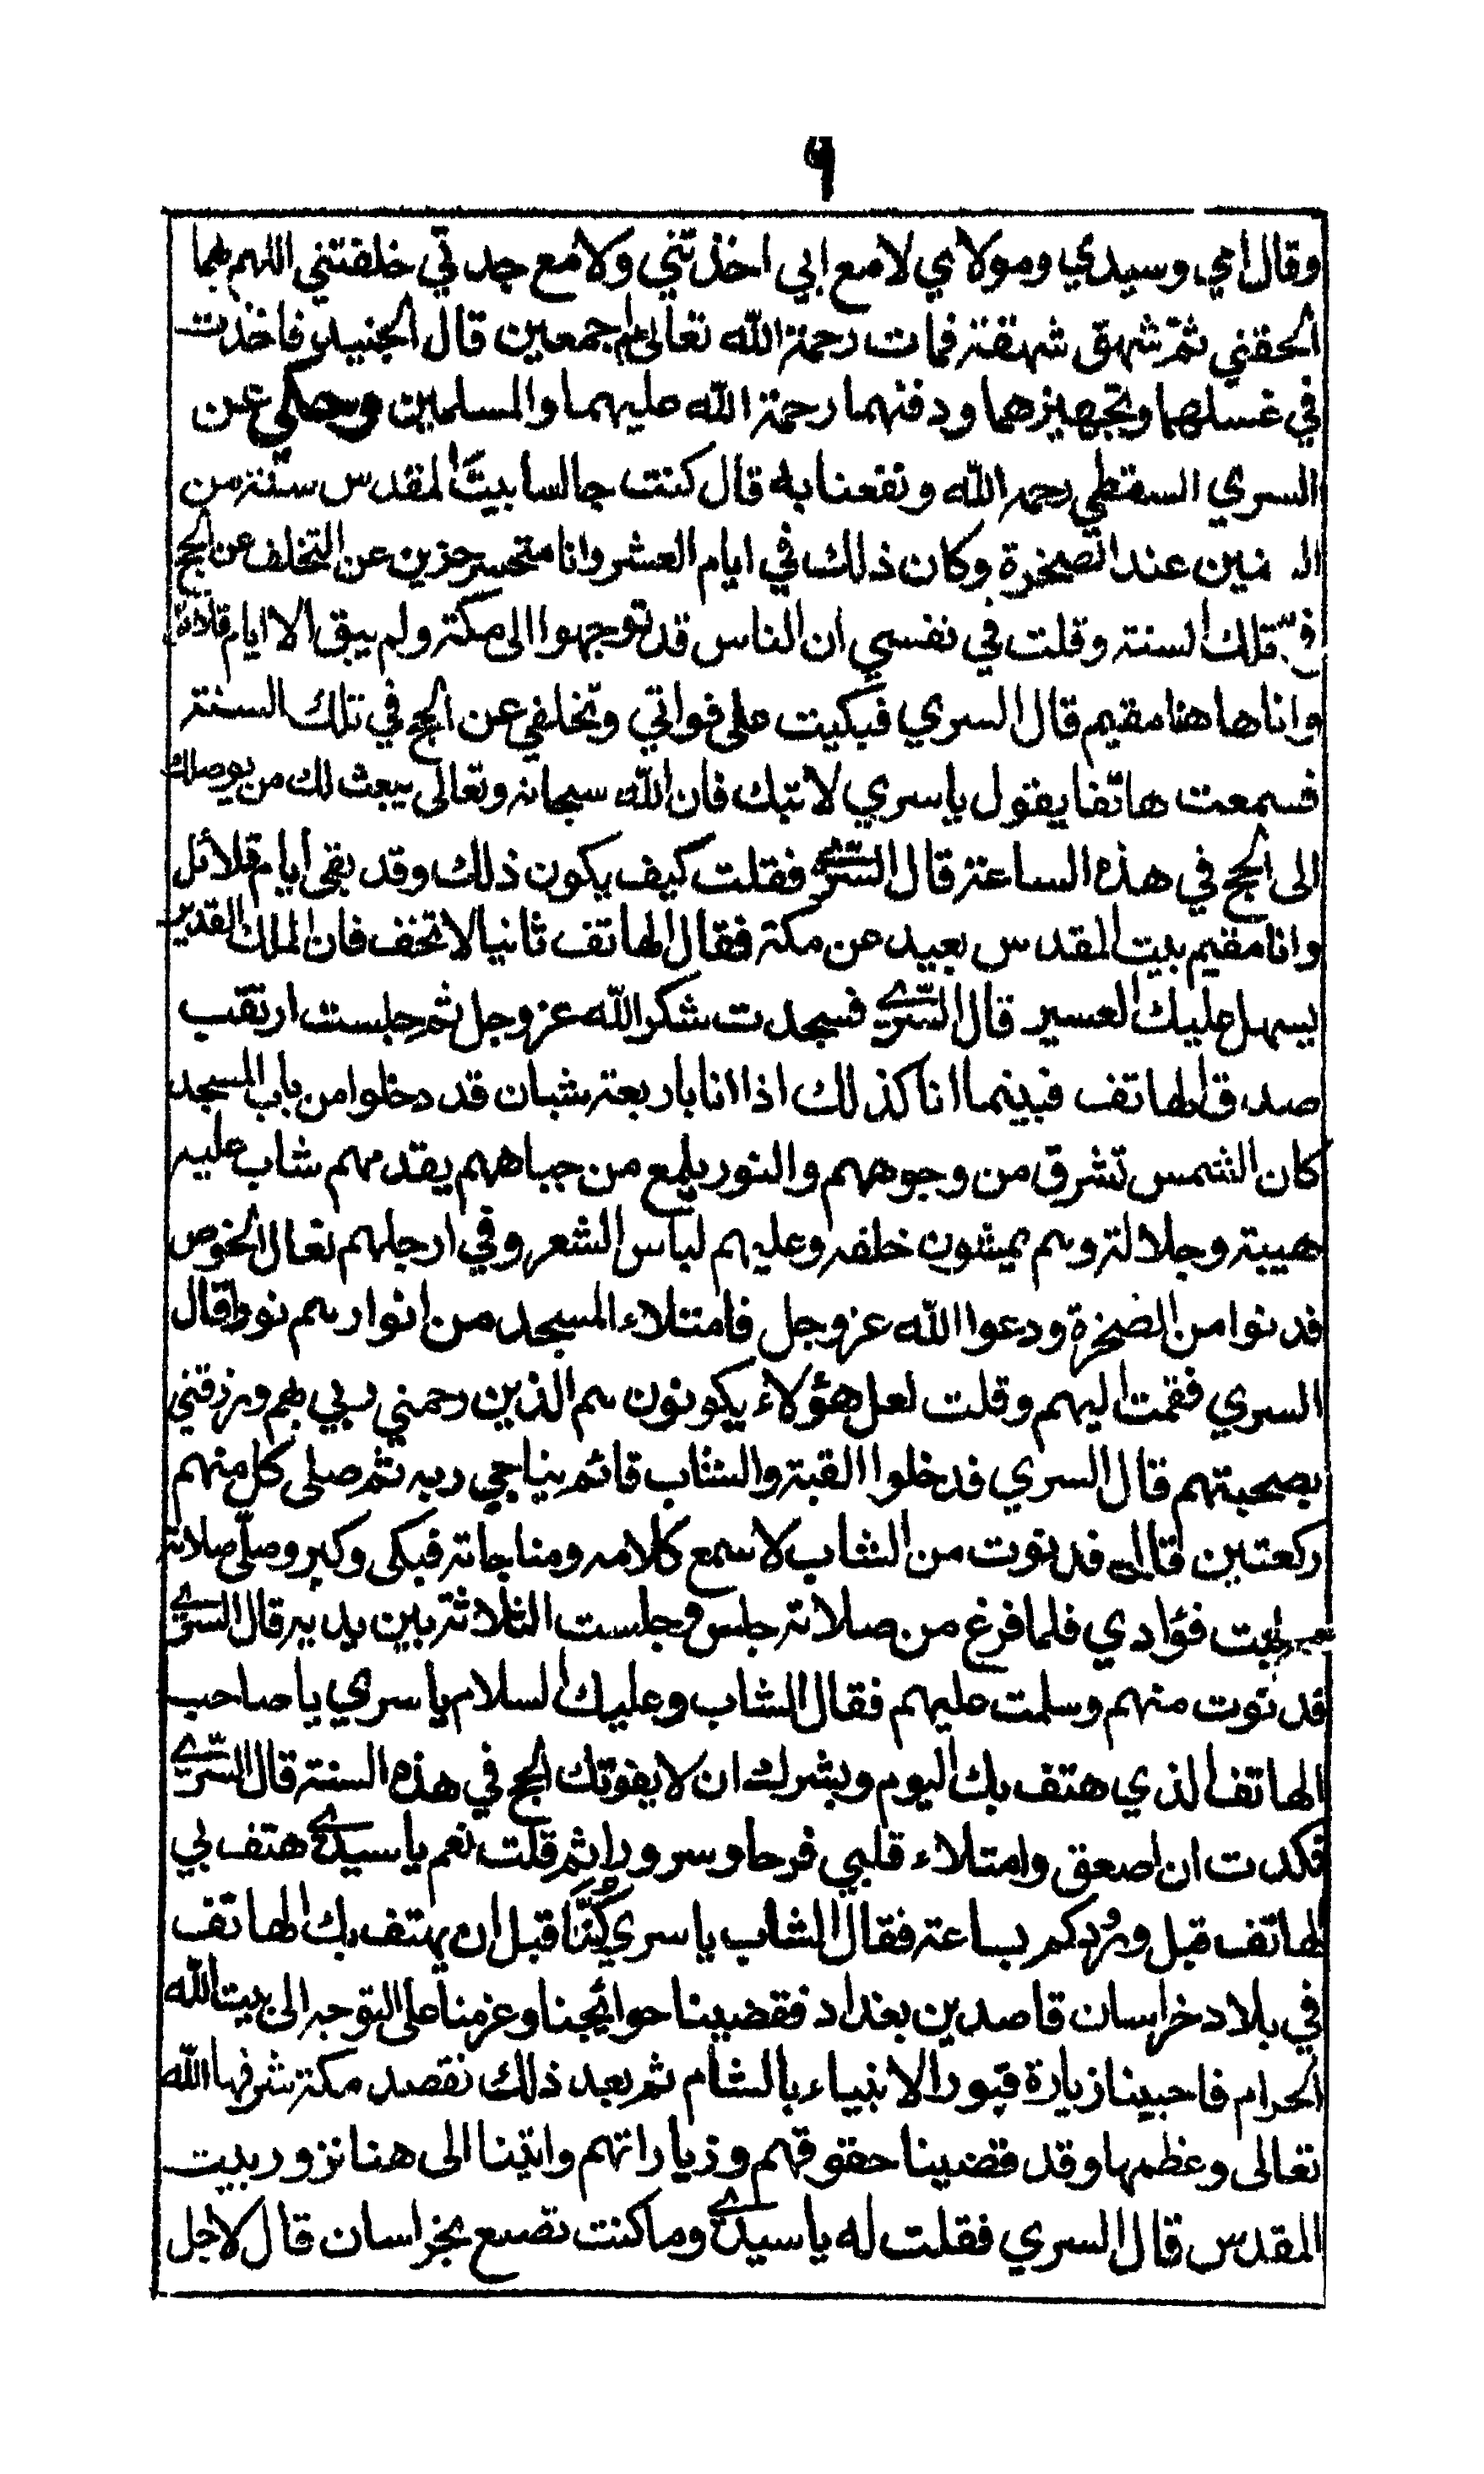 ٩
وقال امي وسيدي ومولاي لا مع ابي اخذتني ولا مع جدتي خلفتني اللهم بهما
الحقني ثم شهق شهقة فمات رحمة الله تعالى اجمعين قال الجنيد فاخذت
في غسلهما وتجهيزهما ودفنهما رحمة الله عليهما والمسلمين وحكي عن
السري السقطي رحمه الله ونفعنا به قال كنت جالسا بيت المقدس سنة من
السنين عند الصخرة وكان ذلك في ايام العشر وانا متحسر حزين عن التخلف عن الحج
تلك السنة وقلت في نفسي ان الناس قد توجهوا الى مكة ولم يبق الا ايام قلائل
وانا هاهنا مقيم قال السري فبكيت على فواتي وتخلفي عن الحج في تلك السنة
فسمعت هاتفا يقول يا سري لا تبك فان الله سبحانه وتعالى يبعث لك من يوصلك
الى الحج في هذه الساعة قال السري فقلت كيف يكون ذلك وقد بقي ايام قلائل
وانا مقيم بيت المقدس بعيد من مكة فقال الهاتف ثانيا لا تخف فان الملك القدير
يسهل عليك العسير قال السري فسجدت شكرا لله عز وجل ثم جلست ارتقب
صدق الهاتف فبينما انا كذلك اذا انا باربعة شبان قد دخلوا من باب المسجد
كان الشمس تشرق من وجوههم والنور يلمع من جباههم يقدمهم شاب عليه
هيبة وجلالة وهم يمشون خلفه وعليهم لباس الشعر وفي ارجلهم نعال الخوص
فدنوا من الصخرة ودعوا الله عز وجل فامتلاء المسجد من انوارهم نورا قال
السري فقمت اليهم وقلت لعل هؤلاء يكونون هم الذين رحمني ربي بهم ورزقني
بصحبتهم قال السري فدخلوا القبة والشاب قائم يناجي ربه ثم صلى كل منهم
ركعتين قال فدنوت من الشاب لاسمع كلامه ومناجاته فبكى وكبر وصلى صلاة
فؤادي فلما فرغ من صلاته جلس وجلست الثلاثة بين يديه قال السري
فدنوت منهم وسلمت عليهم فقال الشاب وعليك السلام يا سري يا صاحب
الهاتف الذي هتف بك اليوم وبشرك ان لا يفوتك الحج في هذه السنة قال السري
فكدت ان اصعق وامتلاء قلبي فرحا وسرورا ثم قلت نعم يا سيدي هتف بي
الهاتف قبل وردكم بساعة فقال الشاب يا سري كنا قبل ان يهتف بك الهاتف
في بلاد خراسان قاصدين بغداد فقضينا حوائجنا وعزمنا على التوجه الى بيت الله
الحرام فاحببنا زيارة قبور الانبياء بالشام ثم بعد ذلك نقصد مكة شرفها الله
تعالى وعظمها وقد قضينا حقوقهم وزياراتهم واتينا الى هنا نزور بيت
المقدس قال السري فقلت له يا سيدي وما كنت تصنع بخراسان قال لاجل